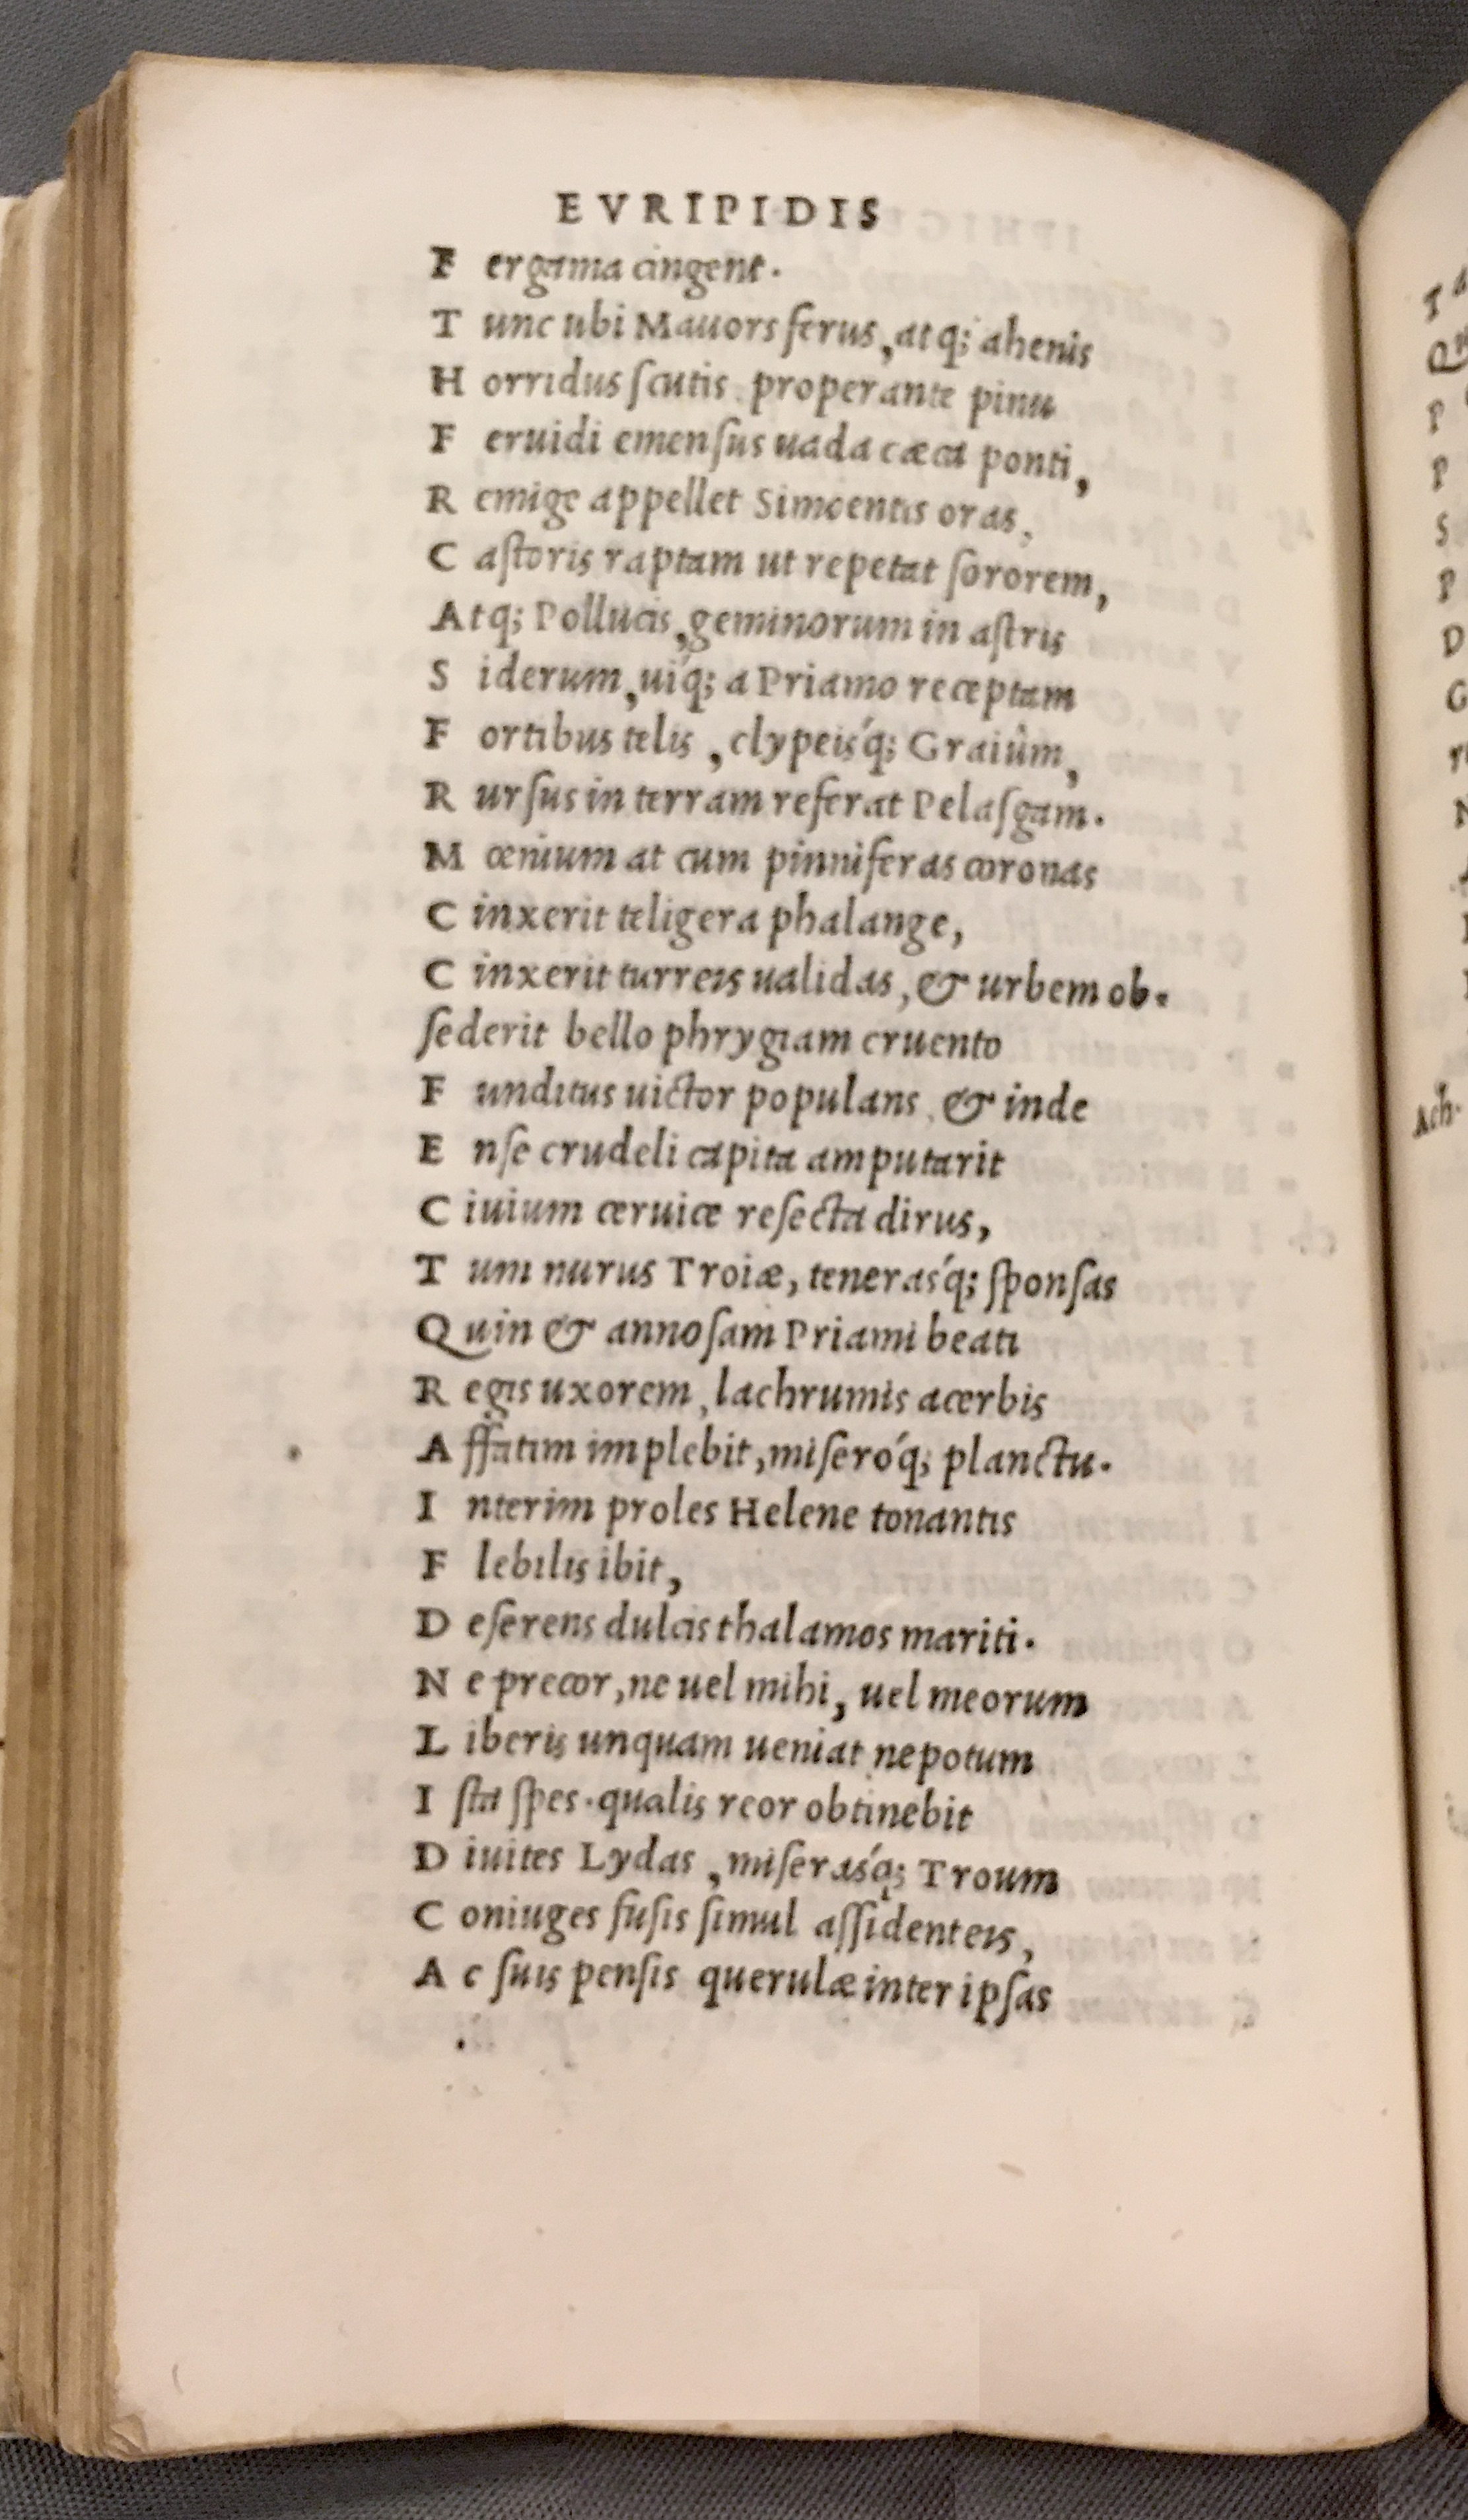 EVRIPIDIS
F ergama cingent.
T unc ubi Mauors ferus, atq; ahenis
H orridus ſcutis properante pinu
F eruidi emenſus uada cæca ponti,
R emige appellet Simoentis oras,
C aſtoris raptam ut repetat ſororem,
Atq; Pollucis, geminorum in aſtris
S iderum, uiq́; a Priamo receptam
F ortibus telis, clypeisq́; Graiûm,
R urſus in terram referat Pelaſgam.
M œnium at cum pinniferas coronas
C inxerit teligera phalange,
C inxerit turreis ualidas, & urbem ob-
ſederit bello phrygiam cruento
F unditus uictor populans, & inde
E nſe crudeli capita amputarit
C iuium ceruice reſecta dirus,
T um nurus Troiæ, tenerasq́; ſponſas
Q uin & annoſam Priami beati
R egis uxorem, lachrumis acerbis
A ffatim implebit, miſeroq́; planctu.
I nterim proles Helene tonantis
F lebilis ibit,
D eſerens dulcis thalamos mariti.
N e precor, ne uel mihi, uel meorum
L iberis unquam ueniat nepotum
I ſta ſpes. qualis reor obtinebit
D iuites Lydas, miſerasq́; Troum
C oniuges fuſis ſimul aſſidenteis,
A c ſuis penſis querulæ inter ipſas
Ach.